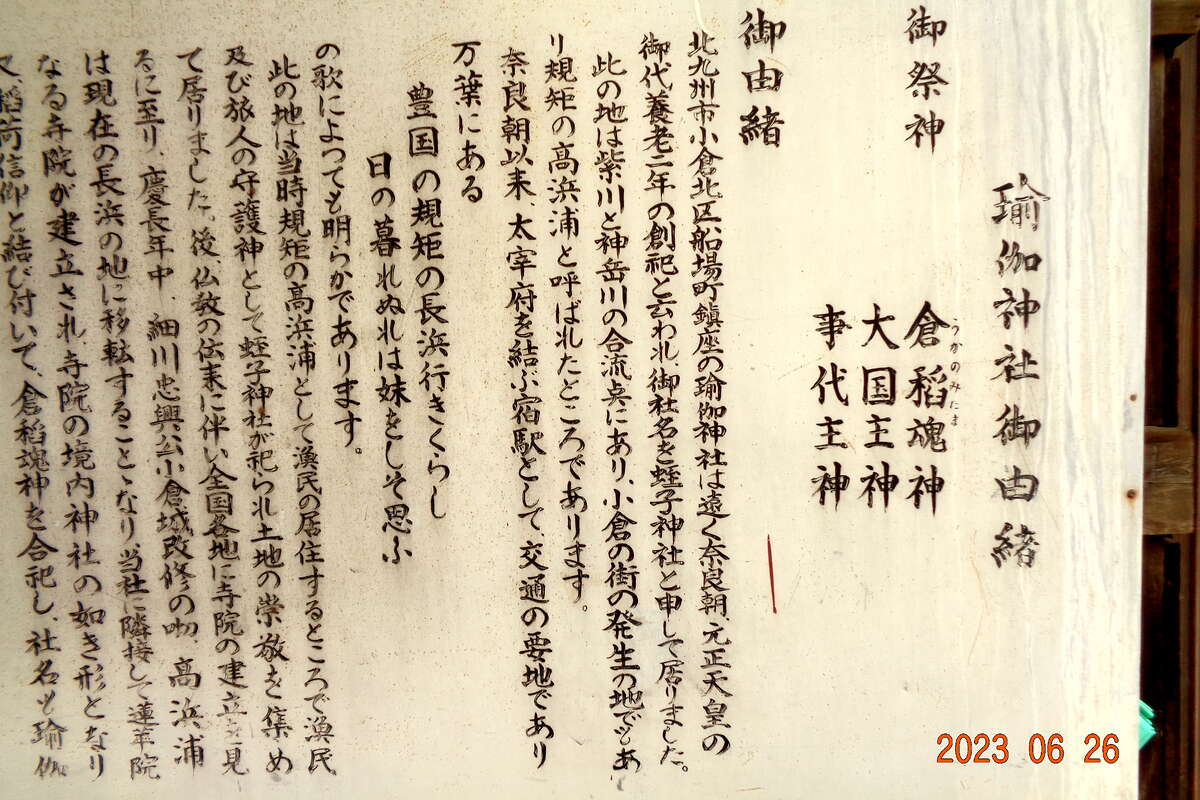 瑜伽神社御由緒
御祭神 倉稲魂神
うかのみたま
大国主神
事代主神
御由緒
北九州市小倉北区船場町鎮座の瑜伽神社は遠く奈良朝、元正天皇の
御代養老二年の創祀と云われ、御社名を蛭子神社と申して居りました。
此の地は紫川と神岳川の合流点にあり、小倉の街の発生の地であ
り規矩の高浜浦と呼ばれたところであります。
奈良朝以来、太宰府を結ぶ宿駅として、交通の要地であり
万葉にある
豊国の規矩の長浜行きくらし
日の暮れぬれば妹をしそ思ふ
の歌によっても明らかであります。
此の地は当時規矩の高浜浦として漁民の居住するところで漁民
及び旅人の守護神として蛭子神社が祀られ土地の崇敬を集め
て居りました。後、仏教の伝来に伴い全国各地に寺院の建立を見
るに至り、慶長年中、細川忠興公小倉城改修の吻、高浜浦
は現在の長浜の地に移転することゝなり当社に隣接して蓮華院
なる寺院が建立され寺院の境内神社の如き形となり
又、稲荷信仰と結び付いて、倉稲魂神を合祀し、社名も瑜伽
2023 06 26